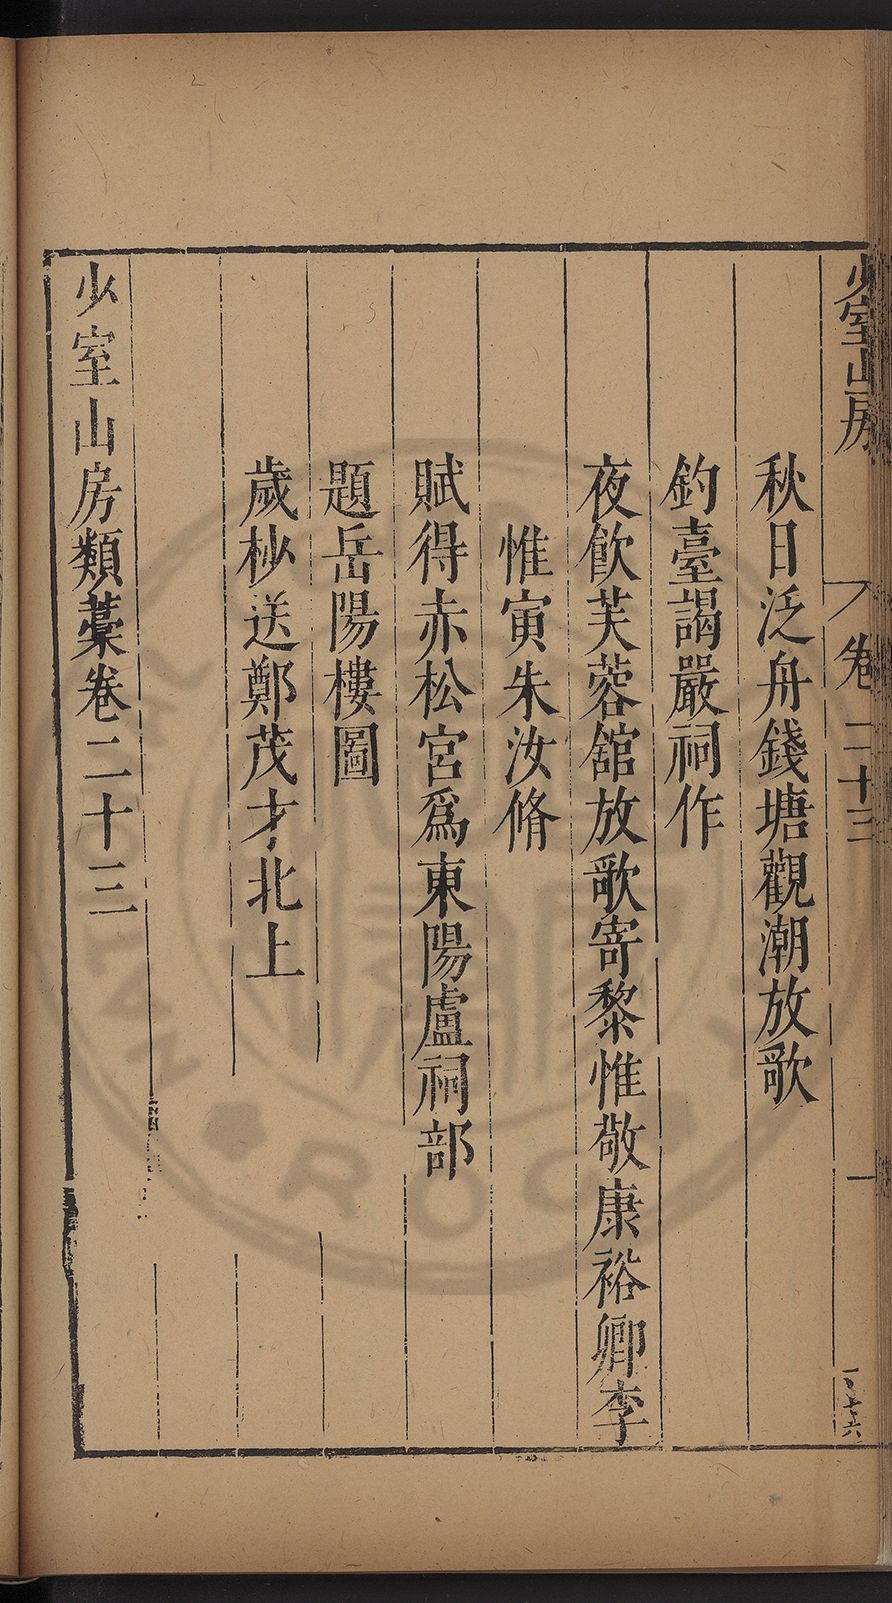 少室山房
卷二十三
一
秋日泛舟錢塘觀潮放歌
釣臺謁嚴祠作
夜飲芙蓉舘放歌寄黎惟敬康裕卿李
惟寅朱汝脩
賦得赤松宮爲東陽盧祠部
題岳陽樓圖
歲杪送鄭茂才北上
少室山房類藁卷二十三